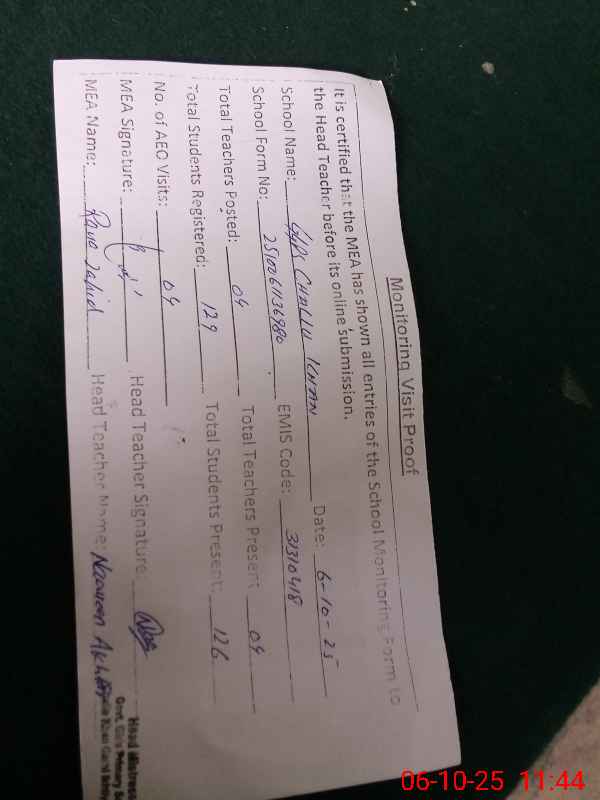 Monitoring Visit Proof
It is certified that the MEA has shown all entries of the School Monitoring Form to
the Head Teacher before its online submission.
School Name: GGPS CHULLU KHAN Date: 6-10-25
School Form No: 2510061136980 EMIS Code: 31310418
Total Teachers Posted: 04 Total Teachers Present: 04
Total Students Registered: 129 Total Students Present: 126
No. of AEO Visits: 04
MEA Signature: Head Teacher Signature:
MEA Name: Rana Jahid Head Teacher Name: Nasreen Akhtar
Head Mistress
Govt. Girls Primary
06-10-25 11:44